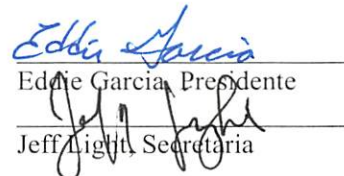 Eddie Garcia
Eddie Garcia, Presidente
Jeff Light
Jeff Light, Secretaria